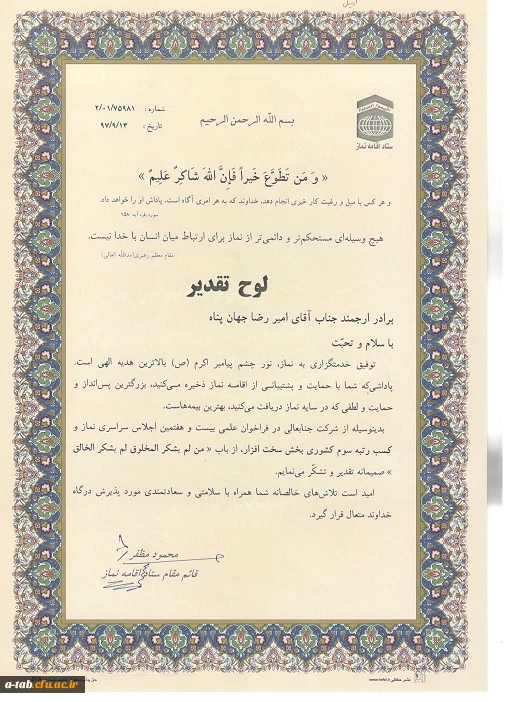 بسم الله الرحمن الرحیم
شماره : ۲/۰۱/۷۵۹۸۱
تاریخ : ۹۷/۹/۱۳
ستاد اقامه نماز
« وَ مَن تَطَوَّعَ خَیراً فَإِنَّ اللهَ شَاکِرٌ عَلِیمٌ »
و هر کس با میل و رغبت کار خیری انجام دهد، خداوند که به هر امری آگاه است، پاداش او را خواهد داد.
سوره بقره آیه ۱۵۸
هیچ وسیله‌ای مستحکم‌تر و دائمی‌تر از نماز برای ارتباط میان انسان با خدا نیست.
مقام معظم رهبری(مدظله العالی)
لوح تقدیر
برادر ارجمند جناب آقای امیر رضا جهان پناه
با سلام و تحیّت
توفیق خدمتگزاری به نماز، نور چشم پیامبر اکرم (ص) بالاترین هدیه الهی است.
پاداشی‌که شما با حمایت و پشتیبانی از اقامه نماز ذخیره می‌کنید، بزرگترین پس‌انداز و
حمایت و لطفی که در سایه نماز دریافت می‌کنید، بهترین بیمه‌هاست.
بدینوسیله از شرکت جنابعالی در فراخوان علمی بیست و هفتمین اجلاس سراسری نماز و
کسب رتبه سوم کشوری بخش سخت افزار، از باب « من لم یشکر المخلوق لم یشکر الخالق
» صمیمانه تقدیر و تشکّر می‌نمایم.
امید است تلاش‌های خالصانه شما همراه با سلامتی و سعادتمندی مورد پذیرش درگاه
خداوند متعال قرار گیرد.
محمود مظفر
قائم مقام ستاد اقامه نماز
a-tab.cfu.ac.ir